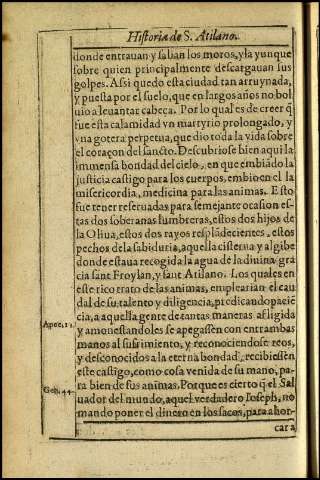 Historia de S. Atilano.
donde entrauan y salian los moros, y la yunque
sobre quien principalmente descargauan sus
golpes. Assi quedo esta ciudad tan arruynada,
y puesta por el suelo, que en largos años no bol
uio a leuantar cabeça. Por lo qual es de creer q̃
fue esta calamidad vn martyrio prolongado, y
vna gotera perpetua, que dio toda la vida sobre
el coraçon del sancto. Descubriose bien aqui la
immensa bondad del cielo, en que embiãdo la
justicia castigo para los cuerpos, embio en el la
misericordia, medicina para las animas. Esto
fue tener reseruadas para semejante ocasion es-
tas dos soberanas lumbreras, estos dos hijos de
la Oliua, estos dos rayos resplãdecientes, estos
pechos de la sabiduria, aquella cisterna y algibe
donde estaua recogida la agua de la diuina gra
cia sant Froylan, y sant Atilano. Los quales en
este rico trato de las animas, emplearian el cau
dal de su talento y diligencia, predicando paciē
cia, a aquella gente de tantas maneras afligida
Apoc. 11. y amonestandoles se apegassen con entrambas
manos al sufrimiento, y reconociendose reos,
y desconocidos a la eterna bondad, recibiessen
este castigo, como cosa venida de su mano, pa-
Gen. 44. ra bien de sus animas. Porque es cierto q̃ el Sal
uador del mundo, aquel verdadero Ioseph, no
mando poner el dinero en los sacos, para ahor-
cara